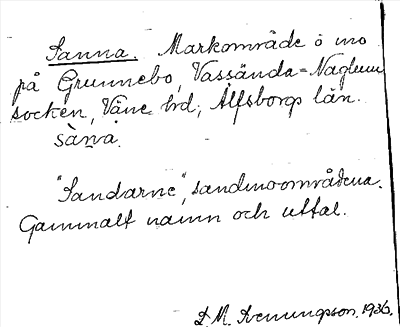 Sanna. Markområde o mo
på Grunnebo, Vassända-Naglum
socken, Väne hd, Älfsborgs län.
sàṉa.
"Sandarne", sandmoområdena.
Gammalt namn och uttal.
D. M. Svenungsson. 1936.